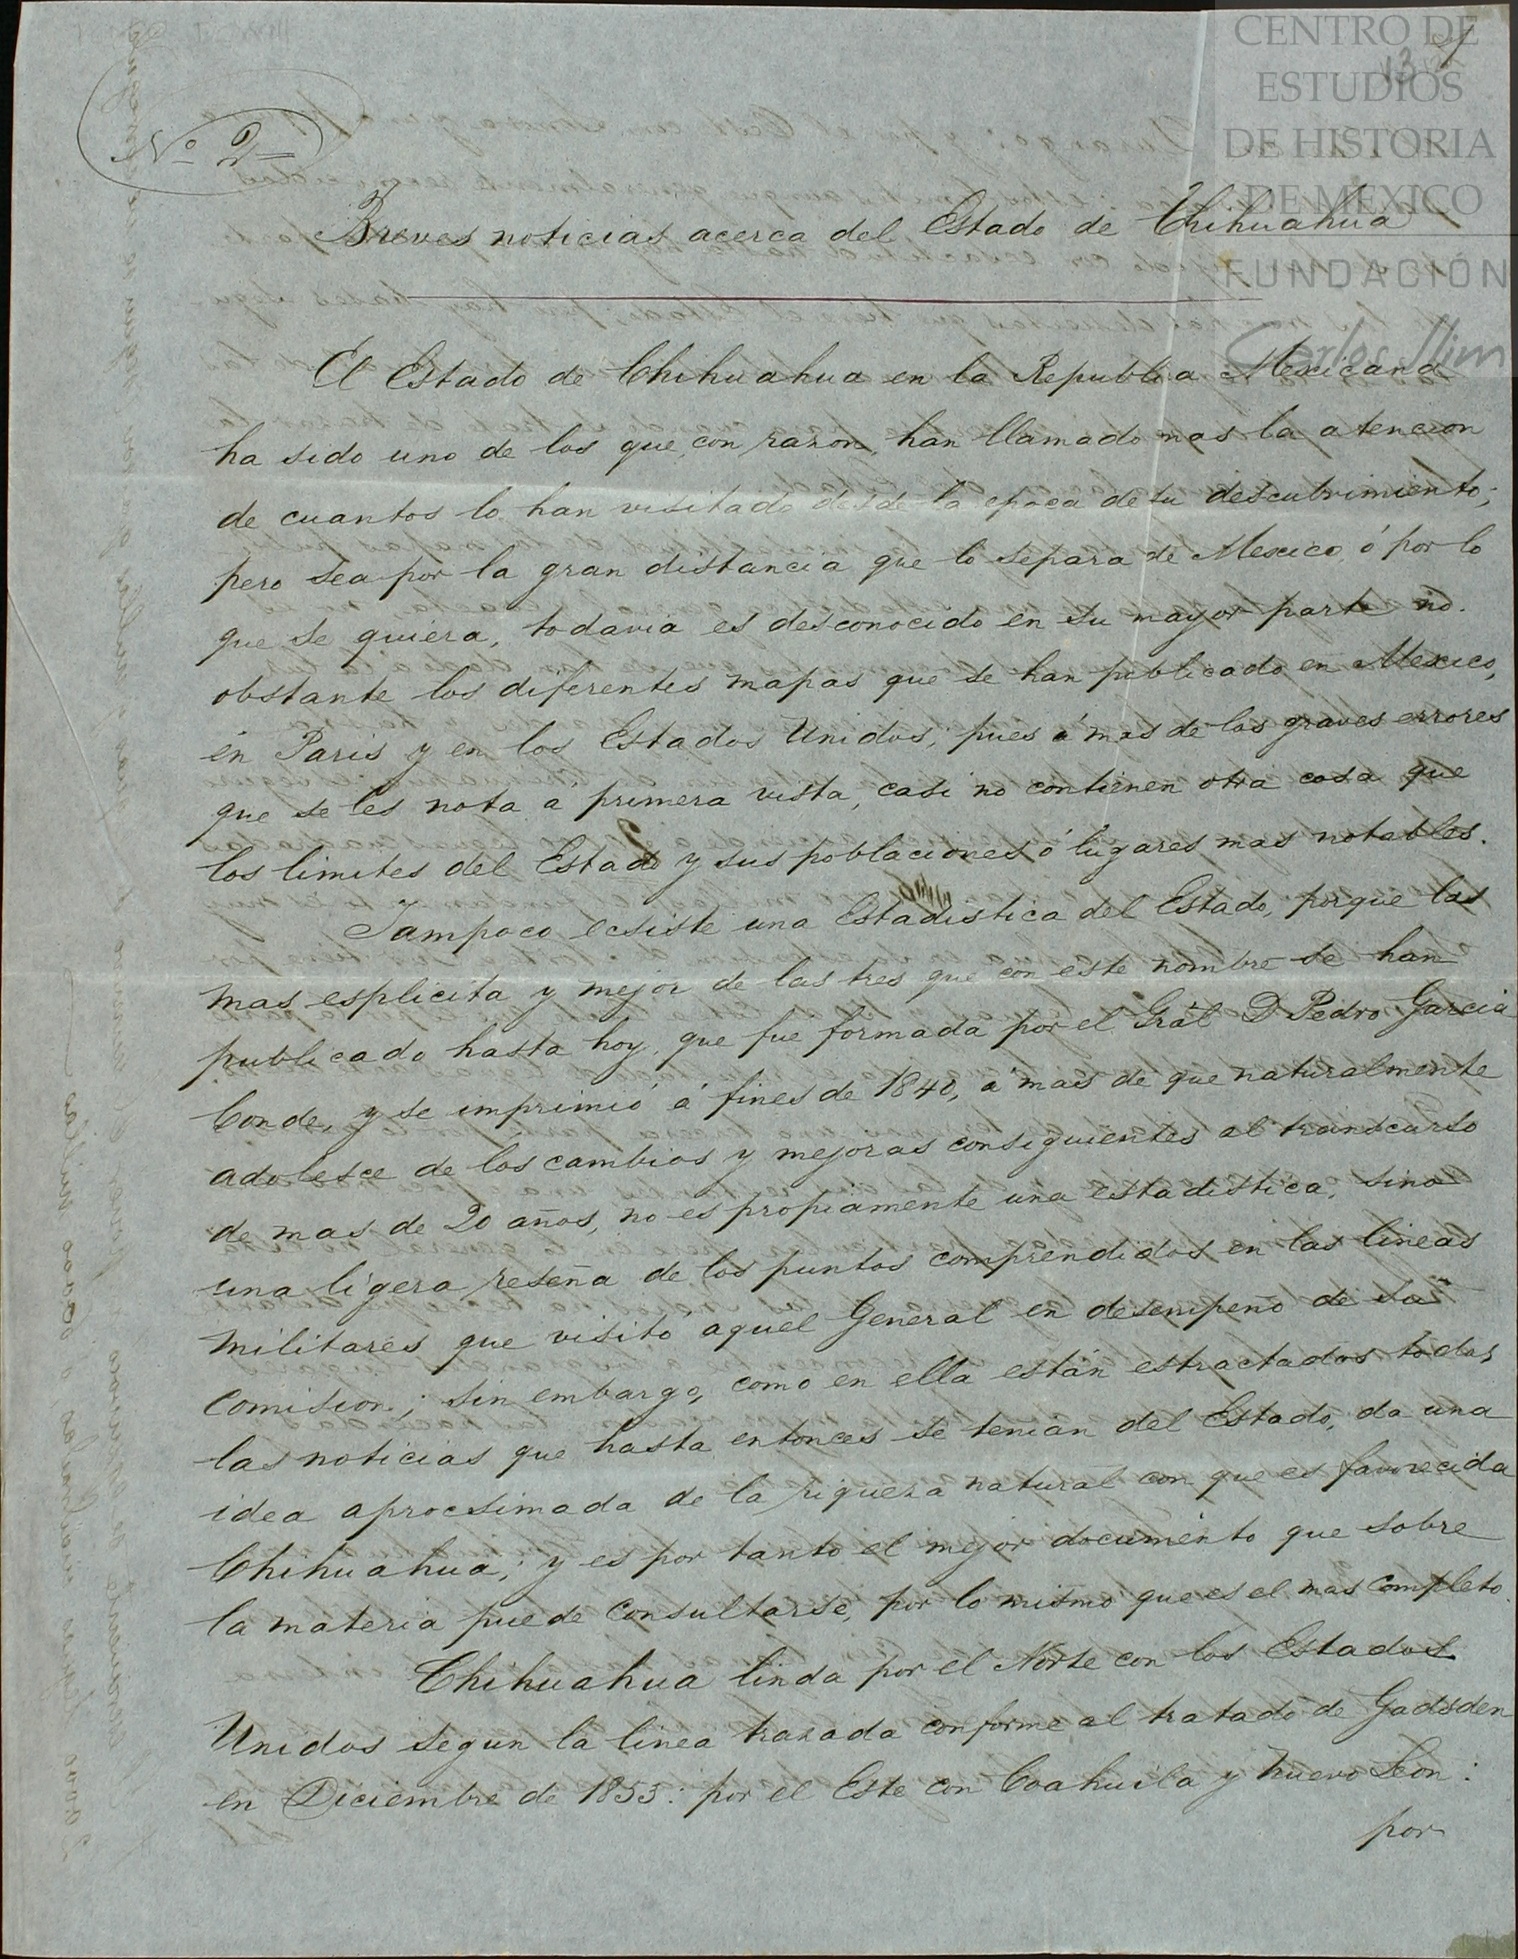 Nº 2
Breves noticias acerca del Estado de Chihuahua
El Estado de Chihuahua en la Republica Mexicana
ha sido uno de los que, con razon, han llamado mas la atencion
de cuantos lo han visitado desde la epoca de su descubrimiento;
pero sea por la gran distancia que lo separa de Mexico, ó por lo
que se quiera, todavia es desconocido en su mayor parte no
obstante los diferentes mapas que se han publicado en Mexico,
en Paris y en los Estados Unidos; pues á mas de los graves errores
que se les nota á primera vista, casi no contienen otra cosa que
los limites del Estado y sus poblaciones ó lugares mas notables.
Tampoco ecsiste una Estadistica del Estado, porque las
mas esplicita y mejor de las tres que con este nombre se han
publicado hasta hoy, que fue formada por el Gral D Pedro Garcia
Conde, y se imprimió á fines de 1840, á mas de que naturalmente
adolesce de los cambios y mejoras consiguientes al transcurso
de mas de 20 años, no es propiamente una estadistica, sino
una ligera reseña de los puntos comprendidos en las lineas
militares que visitó aquel General en desempeño de su
comision; sin embargo, como en ella están estractadas todas
las noticias que hasta entonces se tenian del Estado, da una
idea aprocsimada de la riqueza natural con que es favorecida
Chihuahua; y es por tanto el mejor documento que sobre
la materia puede consultarse, por lo mismo que es el mas completo.
Chihuahua linda por el Norte con los Estados
Unidos segun la linea trazada conforme al tratado de Gadsden
en Diciembre de 1853: por el Este con Coahuila y Nuevo Leon:
por
CENTRO DE
ESTUDIOS
DE HISTORIA
DE MEXICO
FUNDACIÓN
Carlos Slim